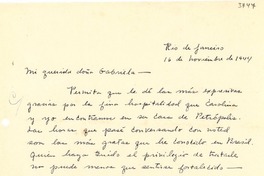 3847
Rio de Janeiro
16 de Noviembre de 1944
Mi querida doña Gabriela —
Permita que le dé las más expresivas
gracias por la fina hospitalidad que Carolina
y yo encontramos en su casa de Petrópolis.
Las horas que pasé conversando con usted
son las más gratas que he conocido en Brasil.
Quien haya tenido el privilegio de tratarle
no puede menos que sentirse fortalecido